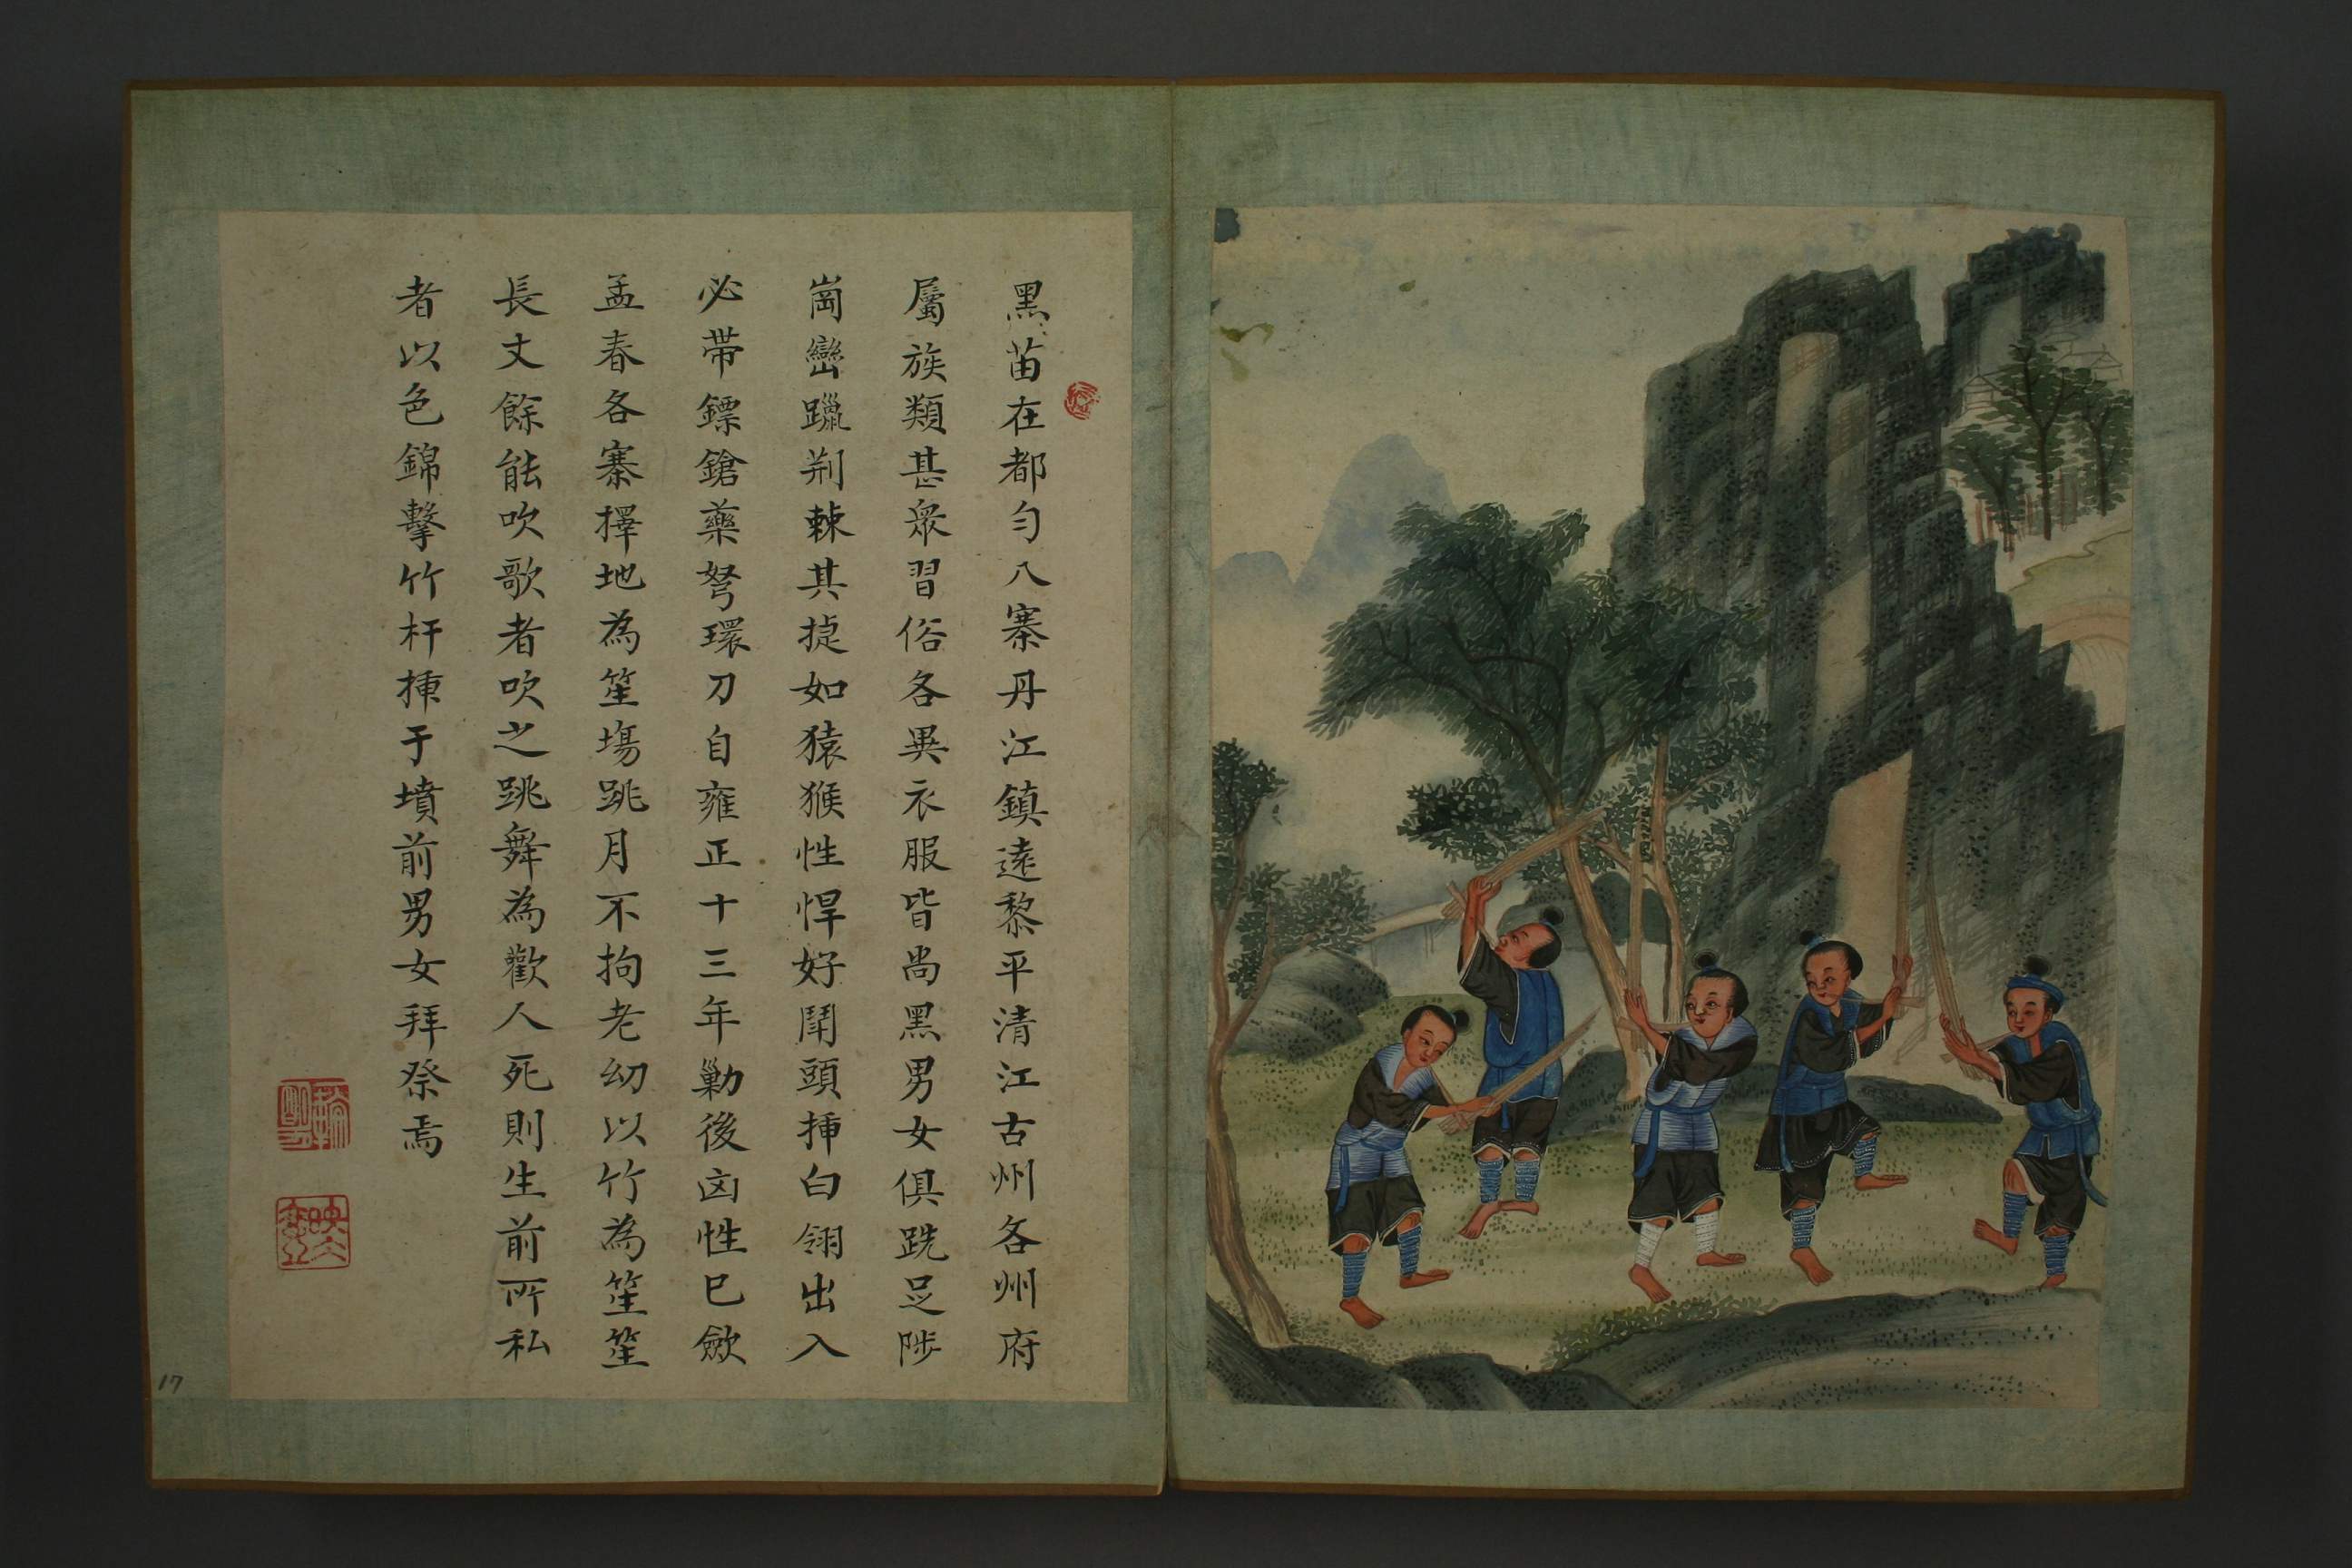 黑苗在都勻八寨丹江鎮遠黎平清江古州各州府
屬族類甚衆習俗各異衣服皆尚黑男女俱跣足陟
崗巒躐荆棘其㨗如猿猴性悍好鬪頭揷白翎出入
必帶鏢鎗藥弩環刀自雍正十三年勦後凶性已斂
孟春各寨擇地為笙塲跳月不拘老幼以竹為笙笙
長丈餘能吹歌者吹之跳舞為歡人死則生前所私
者以色錦擊竹杆揷于墳前男女拜祭焉
17